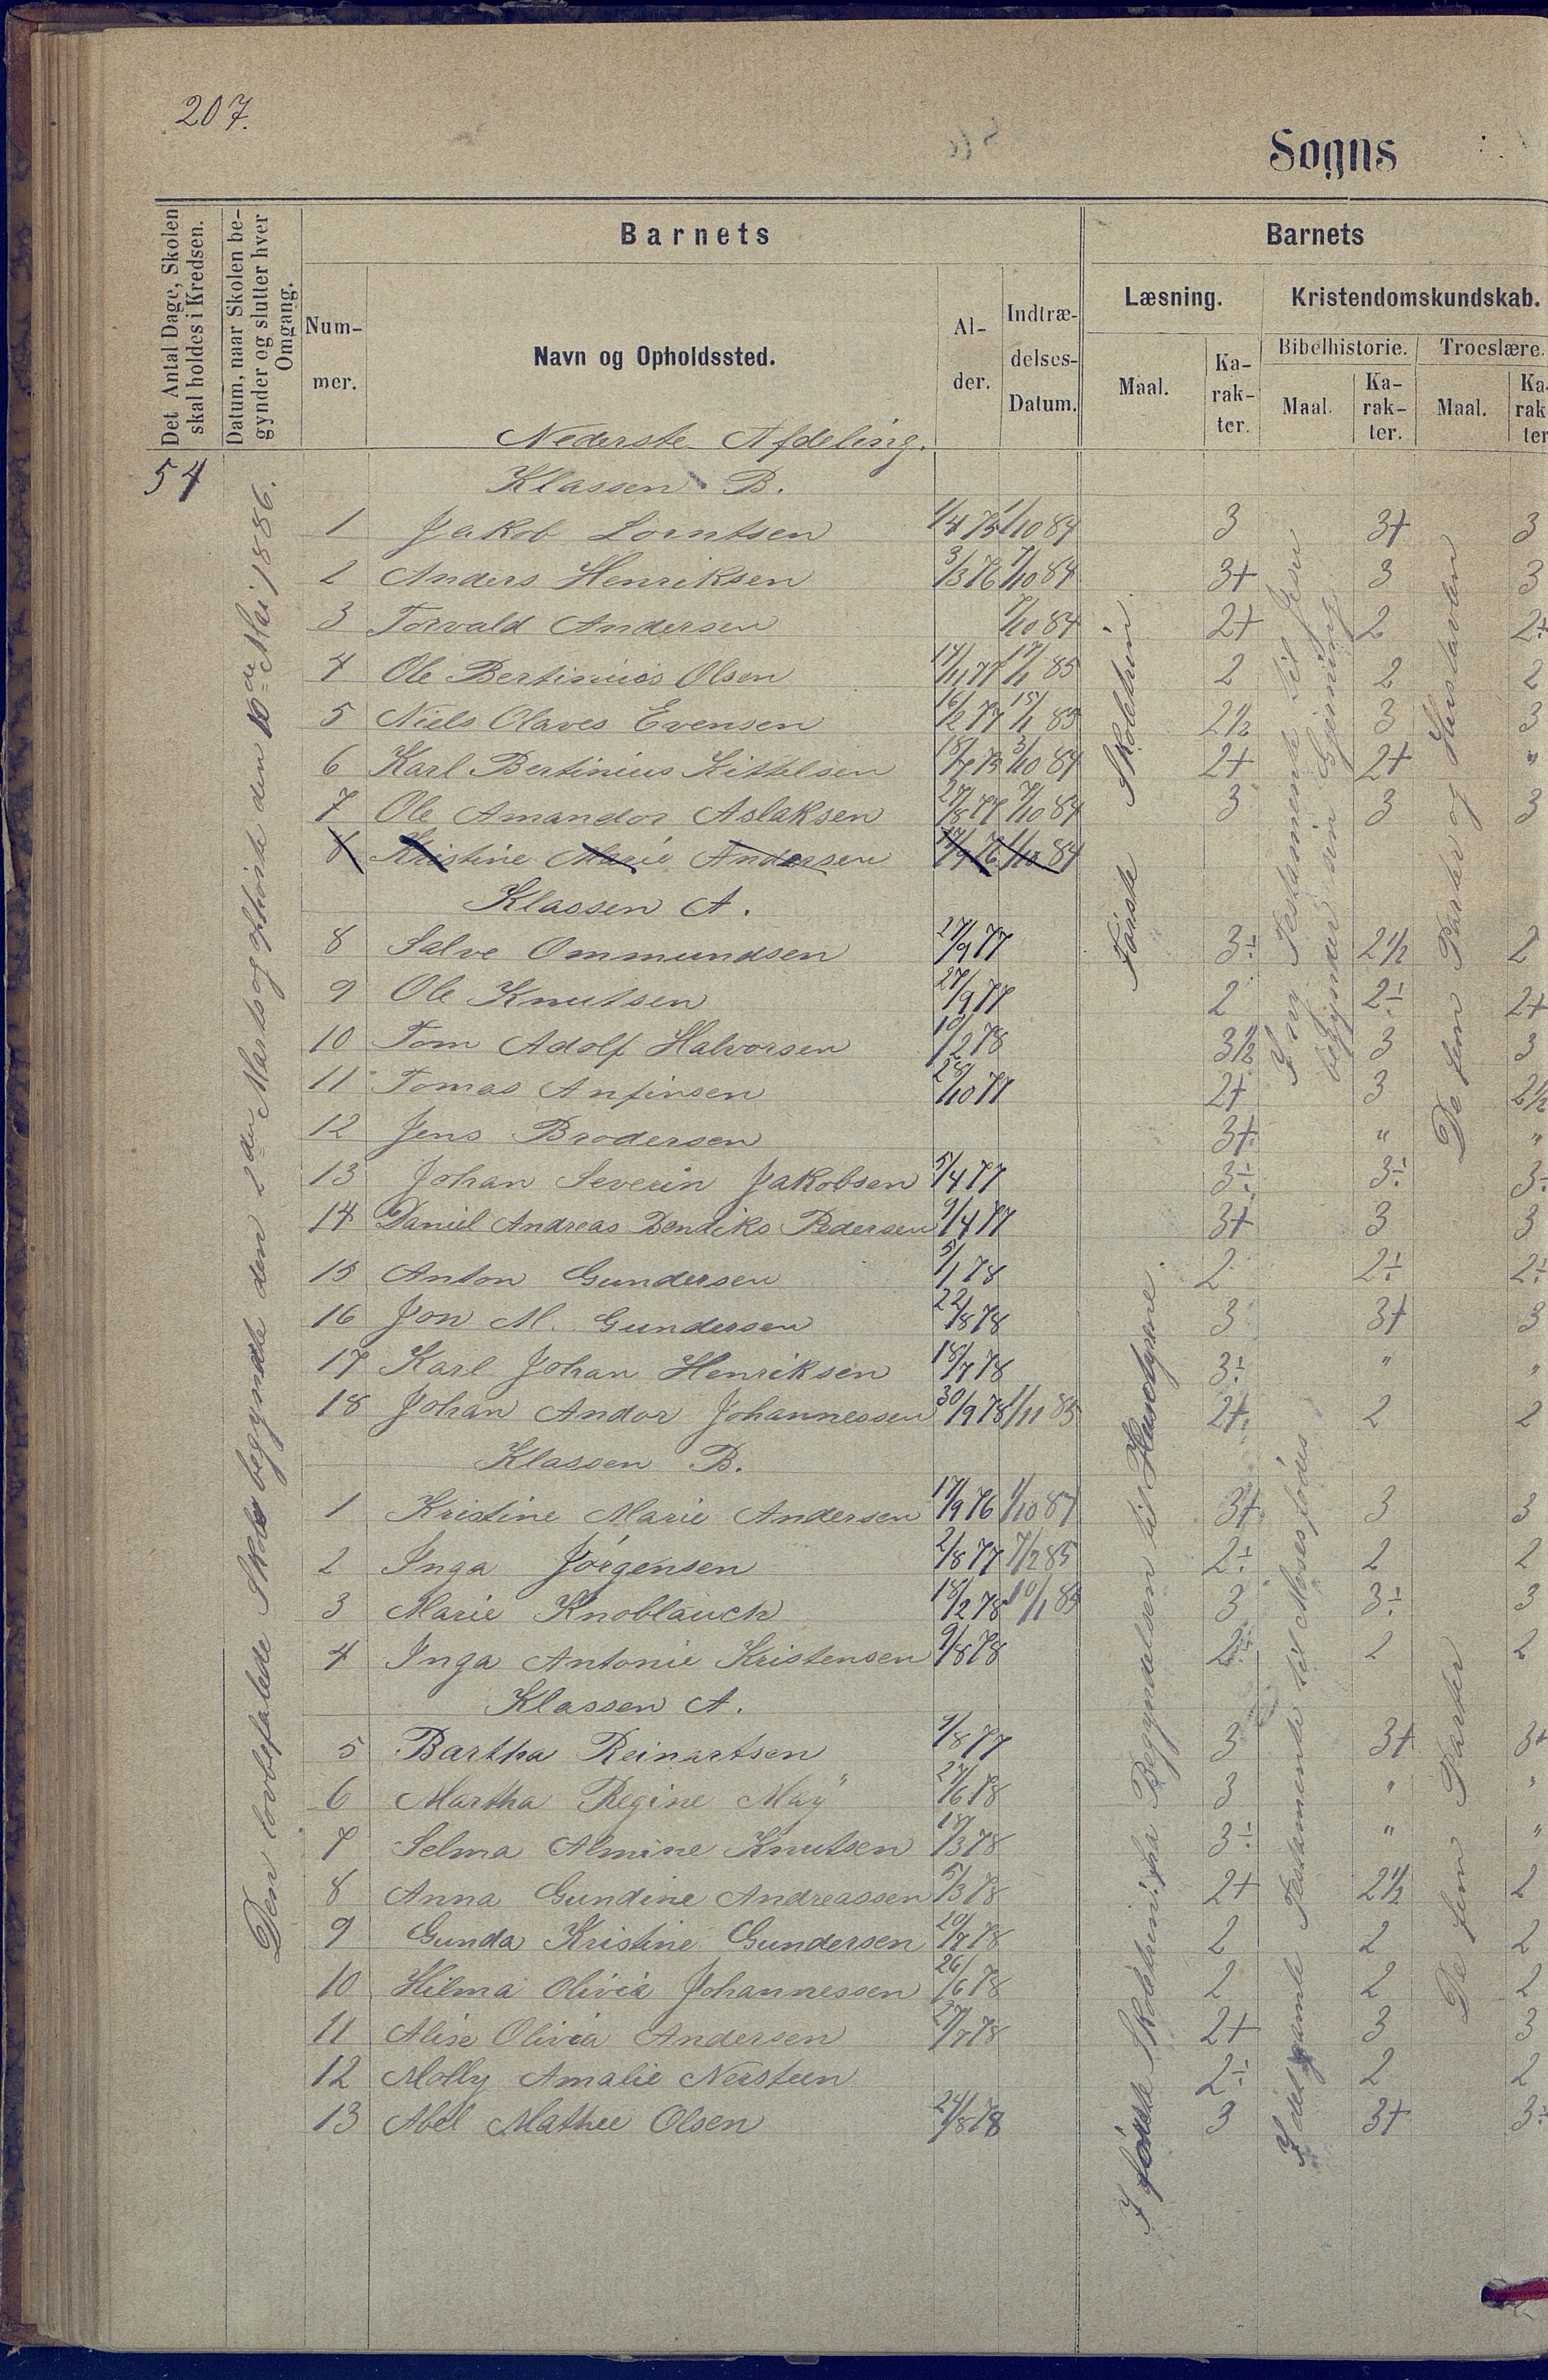 207.
Sogns
Det Antal Dage, Skolen
skal holdes i Kredsen.
Datum, naar Skolen be-
gynder og slutter hver
Omgang.
Barnets
Num-
mer.
Navn og Opholdssted.
Al-
der.
Indtræ-
delses-
Datum.
Barnets
Læsning.
Maal.
Ka-
rak-
ter.
Kristendomskundskab.
Bibelhistorie.
Maal.
Ka-
rak-
ter.
Troeslære.
Maal.
Ka-
rak
ter
54
Den lovbefalede Skole begyndte den 2den Marts og ophørte den 10de Mai 1886.
Nederste Afdeling.
Klassen B.
1 Jakob Lorntsen 1/4 75 1/10 84 3 3+ 3
2 Anders Henriksen 3/3 76 7/10 84 3+ 3 3
3 Torvald Andersen 7/10 84 2+ 2 2÷
4 Ole Bertinius Olsen 17/11 77 17/1 85 2 2 2
5 Niels Olaves Evensen 16/2 77 15/1 85 2½ 3 3
6 Karl Bertinius Kittelsen 18/7 75 3/10 84 2+ 2+ "
7 Ole Amandor Aslaksen 27/8 77 7/10 84 3 3 3
8 Kristine Marie Andersen 17/9 76 1/10 84
Klassen A.
8 Salve Ommundsen 27/9 77 3÷ 2½ 2
9 Ole Knutsen 27/9 77 2 2÷ 2+
10 Tom Adolf Halvorsen 10/2 78 3½ 3 3
11 Tomas Anfinsen 28/10 77 2+ 3 2½
12 Jens Brodersen 3+ " "
13 Johan Severin Jakobsen 5/4 77 3÷ 3÷ 3÷
14 Daniel Andreas Bendiks Pedersen 9/4 77 3+ 3 3
15 Anton Gundersen 5/1 78 2 2÷ 2÷
16 Jon M. Gundersen 22/8 78 3 3+ 3
17 Karl Johan Henriksen 18/7 78 3÷ " "
18 Johan Andor Johannessen 30/9 78 1/11 85 2+ 2 2
Klassen B.
1 Kristine Marie Andersen 17/9 76 1/10 84 3+ 3 3
2 Inga Jørgensen 2/8 77 7/2 85 2÷ 2 2
3 Marie Knoblauch 18/2 78 10/1 85 3 3÷ 3
4 Inga Antonie Kristensen 9/8 78 2÷ 2 2
Klassen A.
5 Bartha Reinartsen 1/8 77 3 3+ 3+
6 Martha Regine May 27/6 78 3 " "
7 Selma Almine Knutsen 17/3 78 3÷ " "
8 Anna Gundine Andreassen 5/3 78 2+ 2½ 2
9 Gunda Kristine Gundersen 20/7 78 2 2 2
10 Hilma Olivia Johannessen 26/6 78 2 2 2
11 Alise Olivia Andersen 27/7 78 2+ 3 3
12 Molly Amalie Nersteen 2÷ 2 2
13 Abel Mathee Olsen 24/8 78 3 3+ 3÷
Første Skoletrin.
I ny Testamente til Jesu
begynder sin Gjerning
De fem Parter og Hustavlen
I første Skoletrin: fra Begyndelsen til Husdyrene.
I det gamle Testamente til Moses fødes
De fem Parter